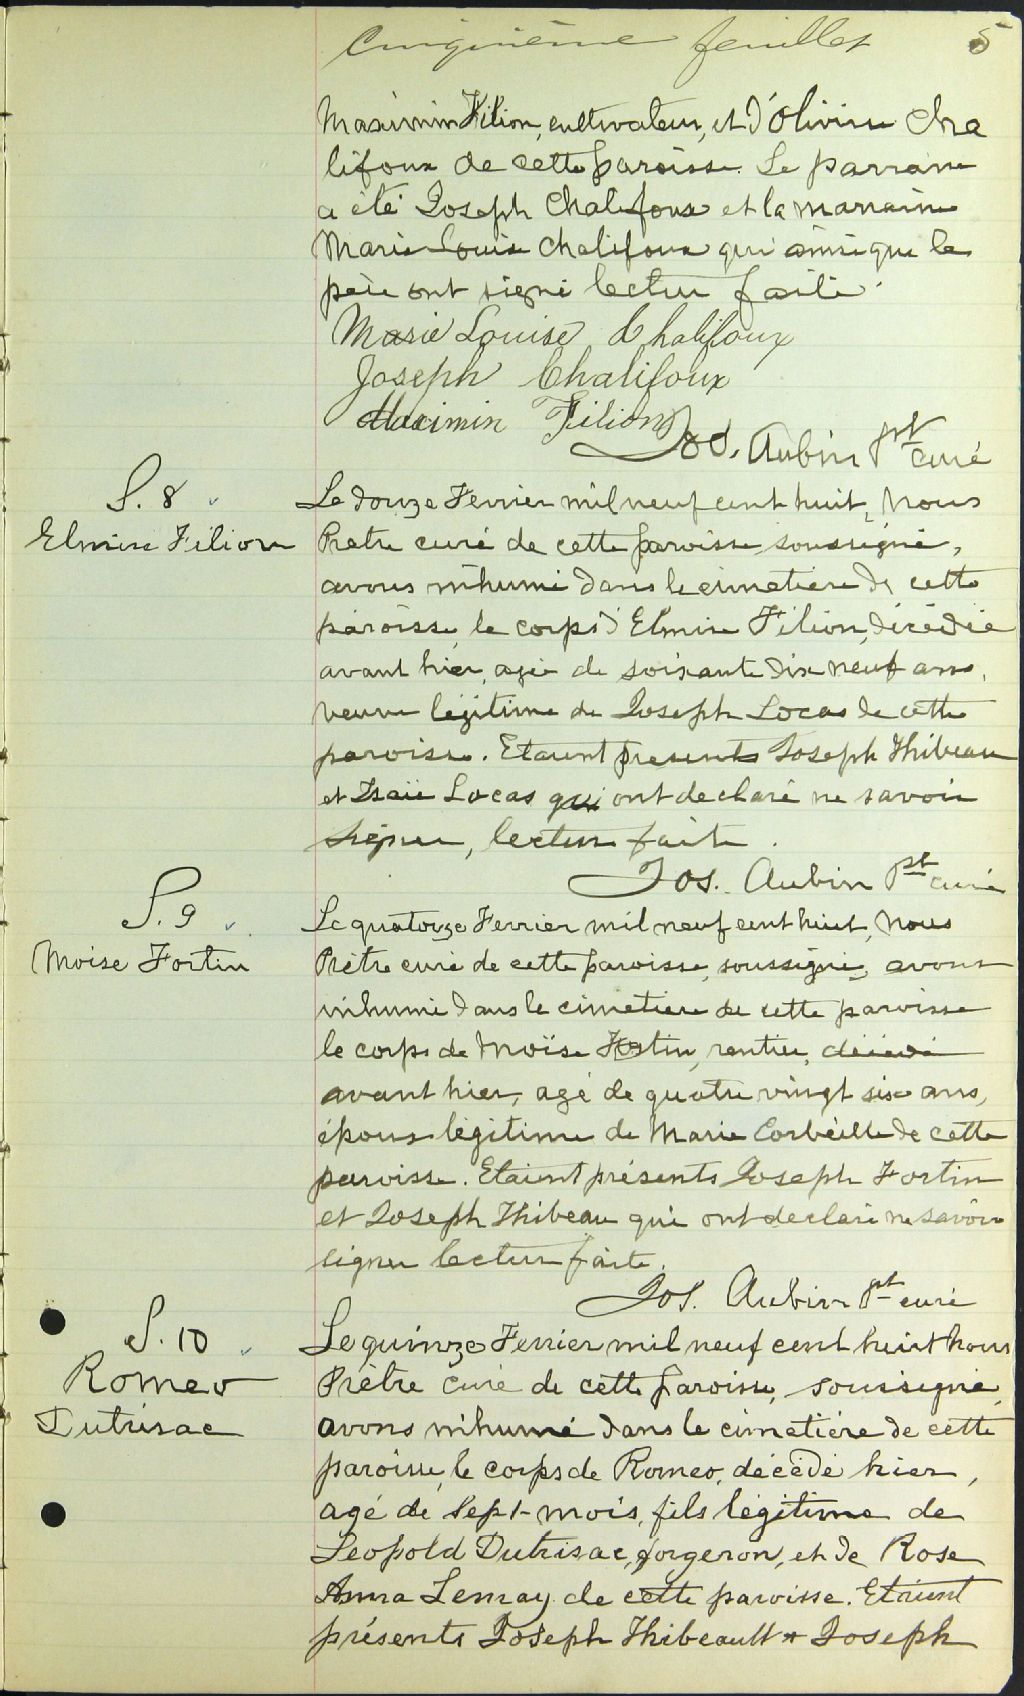 Cinquième feuillet 5
Maximin Filion, cultivateur, et d'Olivine Cha
lifoux de cette paroisse. Le parrain
a été Joseph Chalifoux et la marraine
Marie Louise Chalifoux qui ainsi que le
père ont signé lecture faite.
Marie Louise Chalifoux
Joseph Chalifoux
Maximin Filion
Jos. Aubin Pst curé
S. 8
Elmire Filion
Le douze Fevrier mil neuf cent huit, Nous
Pretre curé de cette paroisse soussigné,
avons inhumé dans le cimetiere de cette
paroisse, le corps d'Elmire Filion, décédée
avant hier, agée de soixante dix neuf ans,
veuve légitime de Joseph Locas de cette
paroisse. Etaient presents Joseph Thibeau
et Isaïe Locas qui ont declaré ne savoir
signer, lecture faite.
Jos. Aubin Pst curé
S. 9
Moise Fortin
Le quatorze Fevrier mil neuf cent huit, Nous
Prêtre curé de cette paroisse, soussigné, avons
inhumé dans le cimetiere de cette paroisse
le corps de Moïse Fortin, rentier, décédé
avant hier, agé de quatre vingt six ans,
époux légitime de Marie Corbeille de cette
paroisse. Etaient présents Joseph Fortin
et Joseph Thibeau qui ont declaré ne savoir
signer lecture faite.
Jos. Aubin Pst curé
S. 10
Romeo
Dutrisac
Le quinze Fevrier mil neuf cent huit Nous
Prêtre curé de cette paroisse, soussigné,
avons inhumé dans le cimetière de cette
paroisse, le corps de Romeo, décédé hier,
agé de sept mois, fils légitime de
Leopold Dutrisac, forgeron, et de Rose
Anna Lemay de cette paroisse. Etaient
présents Joseph Thibeault & Joseph